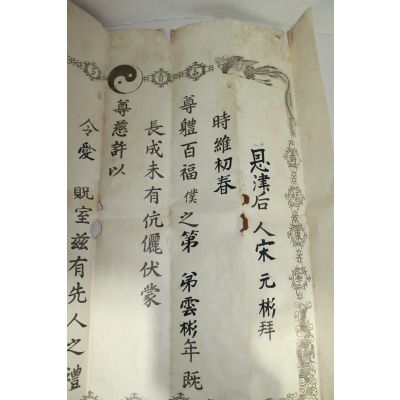 恩津后人宋元彬拜
時維初春
尊體百福僕之第 弟雲彬年既
長成未有伉儷伏蒙
尊慈許以
令愛 貺室茲有先人之禮